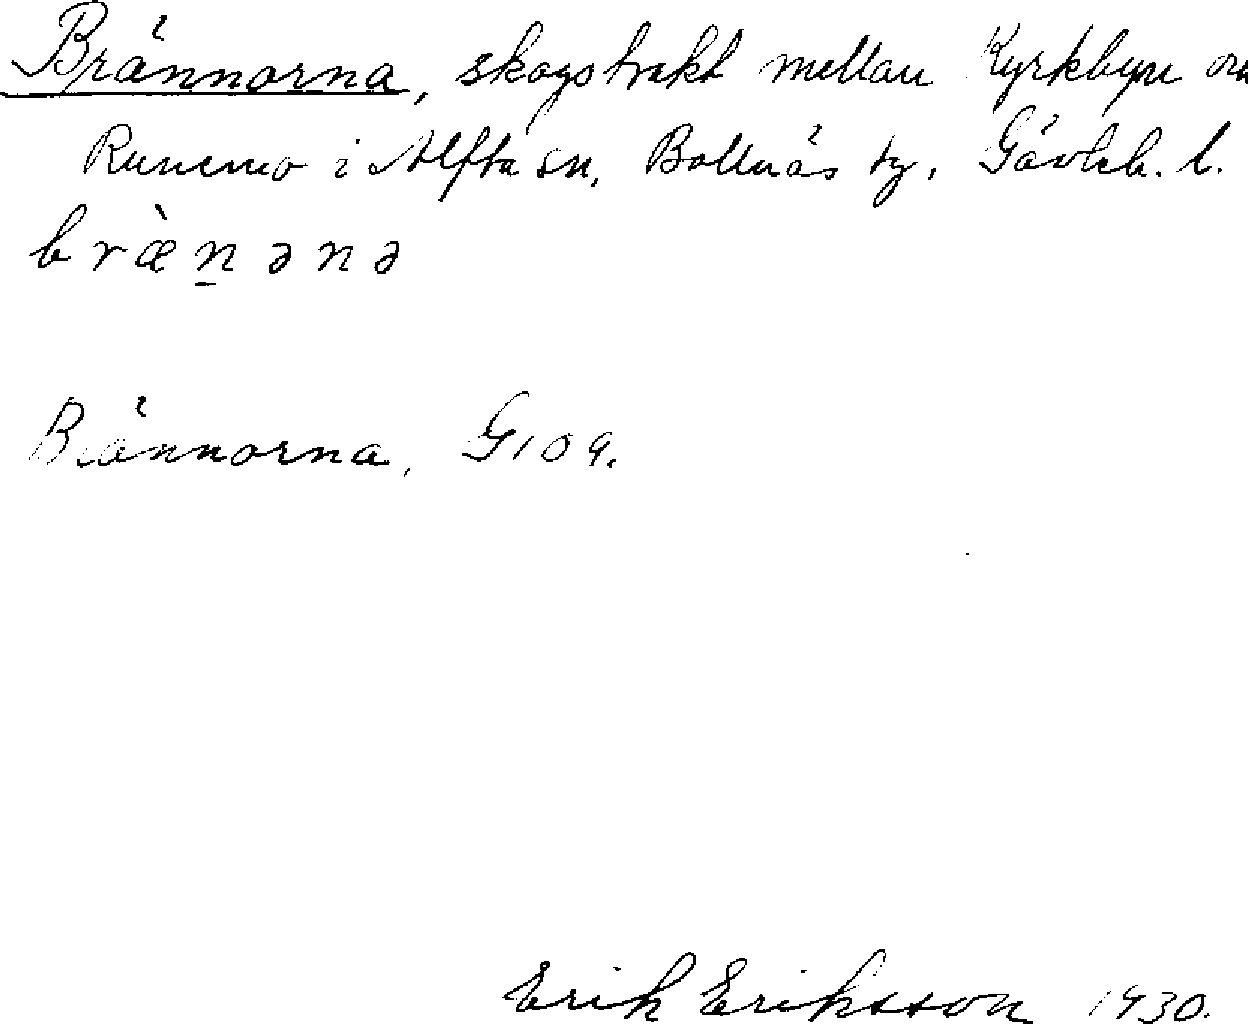 Brännorna, skogstrakt mellan Kyrkbyn
Runemo i Alfta sn, Bollnäs tg, Gävleb. l.
bræ̀n̠ənə
Brännorna, G 109.
Erik Eriksson 1930.